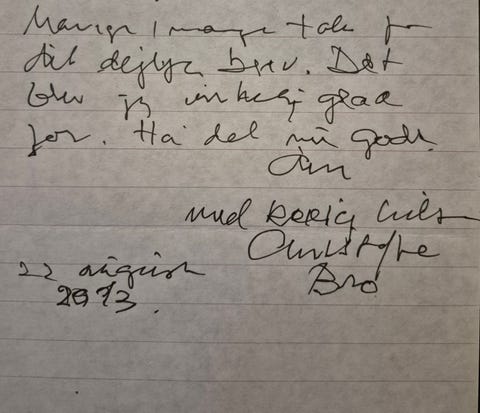 Mange, mange tak for
dit dejlige brev. Det
blev jeg virkelig glad
for. Ha' det nu godt.
med kærlig hilsen
Bro
22 august
2013.